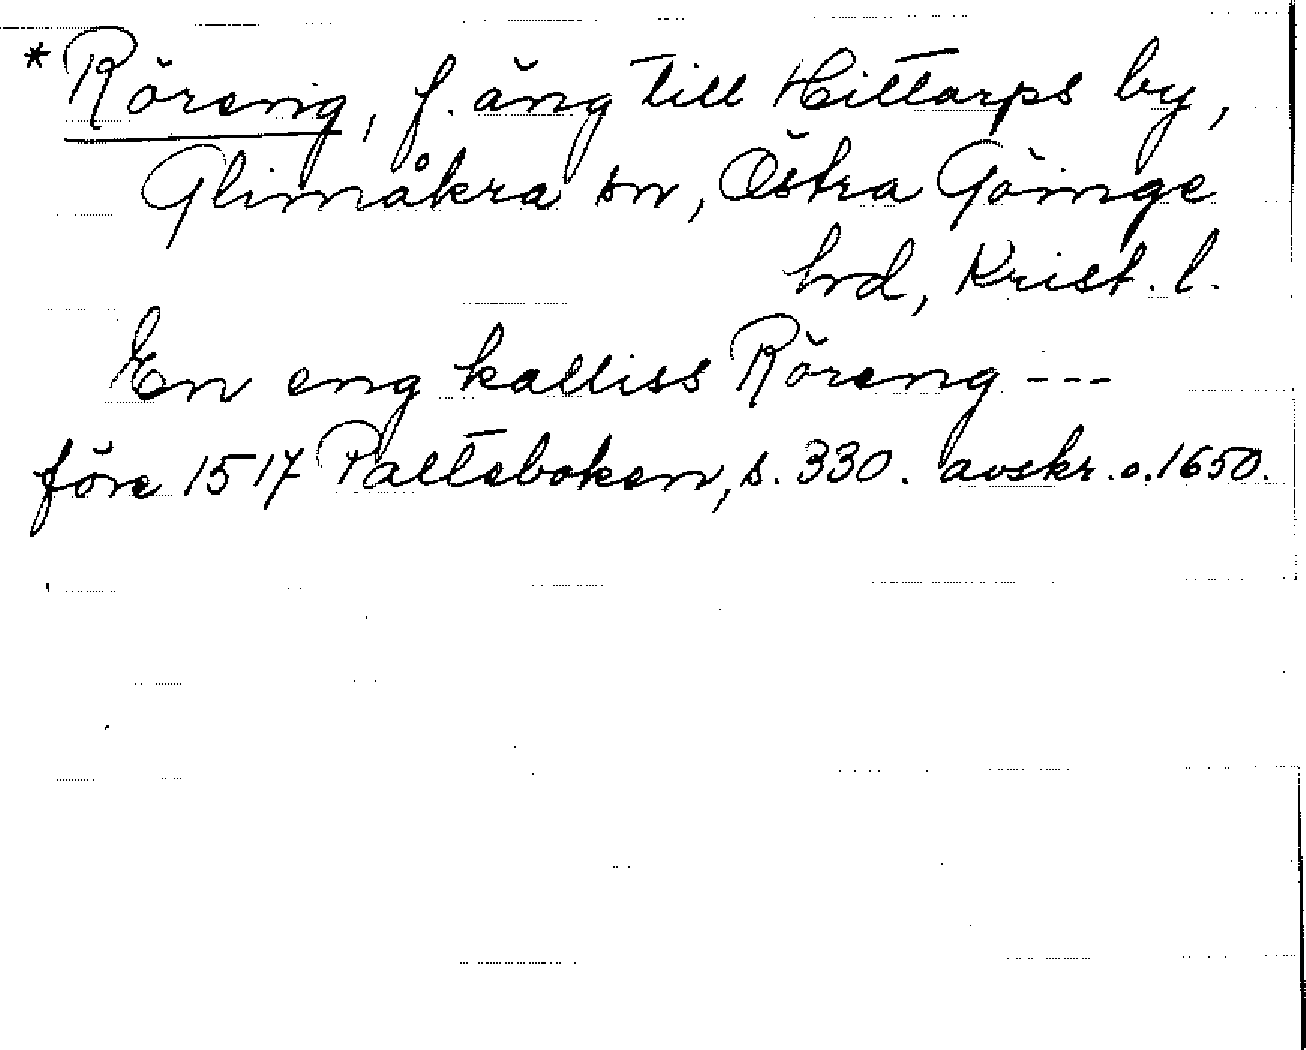 * Röreng, f. äng till Hittarps by,
Glimåkra sn, Östra Göinge
hrd, Krist. l.
En eng kalliss Röreng ---
före 1517 Paltsboken, s. 330. avskr. o. 1650.